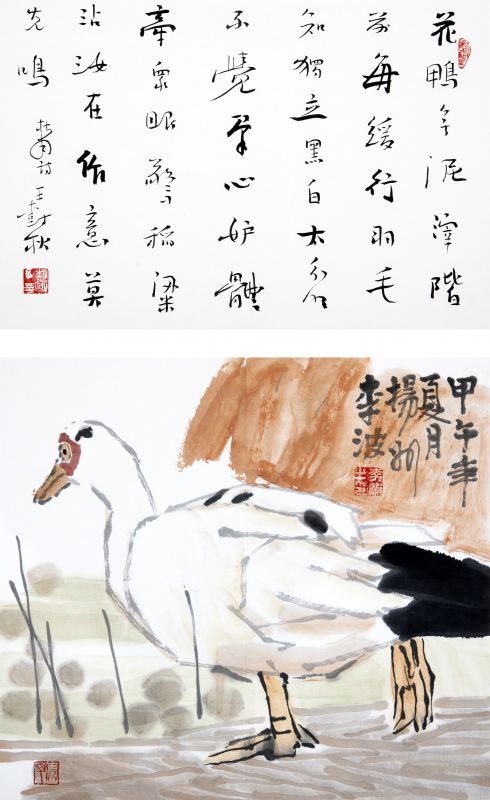 花鴨無泥滓階
前每緩行羽毛
知獨立黑白太分明
不覺羣心妒體
牽眾眼驚稻粱
沾汝在作意莫
先鳴 杜甫詩 王樹秋
甲午年
夏月
揚州
李波